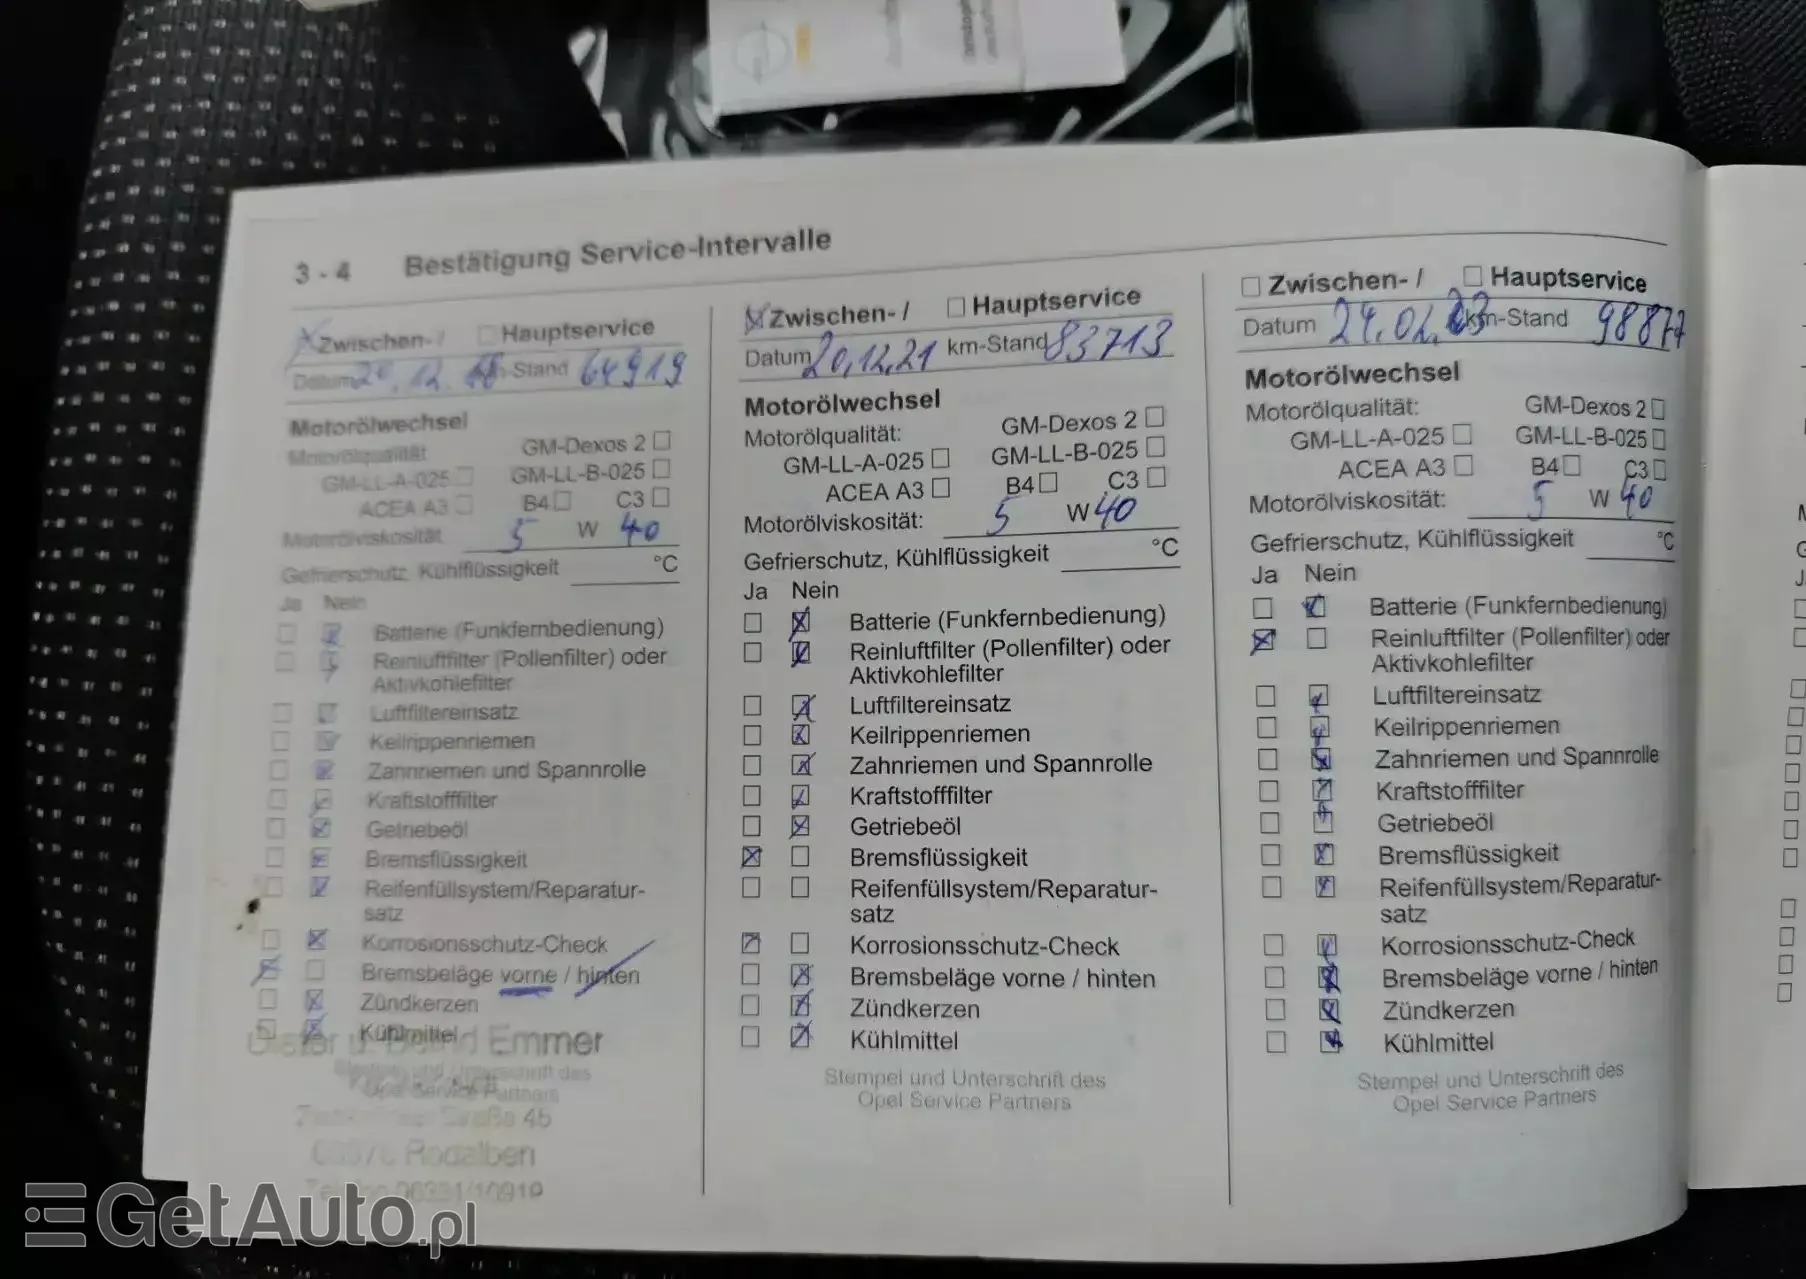 3 - 4 Bestätigung Service-Intervalle
Zwischen- / Hauptservice
Datum km-Stand 64919
Motorölwechsel
Motorölqualität GM-Dexos 2
GM-LL-A-025 GM-LL-B-025
ACEA A3 B4 C3
Motorölviskosität 5 W 40
Gefrierschutz, Kühlflüssigkeit °C
Ja Nein
Batterie (Funkfernbedienung)
Reinluftfilter (Pollenfilter) oder
Aktivkohlefilter
Luftfiltereinsatz
Keilrippenriemen
Zahnriemen und Spannrolle
Kraftstofffilter
Getriebeöl
Bremsflüssigkeit
Reifenfüllsystem/Reparatur-
satz
Korrosionsschutz-Check
Bremsbeläge vorne / hinten
Zündkerzen
Kühlmittel
Emmer
Stempel und Unterschrift des
Opel Service Partners
Straße 45
Rodalben
Zwischen- / Hauptservice
Datum 20.12.21 km-Stand 83713
Motorölwechsel
Motorölqualität: GM-Dexos 2
GM-LL-A-025 GM-LL-B-025
ACEA A3 B4 C3
Motorölviskosität: 5 W 40
Gefrierschutz, Kühlflüssigkeit °C
Ja Nein
Batterie (Funkfernbedienung)
Reinluftfilter (Pollenfilter) oder
Aktivkohlefilter
Luftfiltereinsatz
Keilrippenriemen
Zahnriemen und Spannrolle
Kraftstofffilter
Getriebeöl
Bremsflüssigkeit
Reifenfüllsystem/Reparatur-
satz
Korrosionsschutz-Check
Bremsbeläge vorne / hinten
Zündkerzen
Kühlmittel
Stempel und Unterschrift des
Opel Service Partners
Zwischen- / Hauptservice
Datum 24.02.23 km-Stand 98877
Motorölwechsel
Motorölqualität: GM-Dexos 2
GM-LL-A-025 GM-LL-B-025
ACEA A3 B4 C3
Motorölviskosität: 5 W 40
Gefrierschutz, Kühlflüssigkeit °C
Ja Nein
Batterie (Funkfernbedienung)
Reinluftfilter (Pollenfilter) oder
Aktivkohlefilter
Luftfiltereinsatz
Keilrippenriemen
Zahnriemen und Spannrolle
Kraftstofffilter
Getriebeöl
Bremsflüssigkeit
Reifenfüllsystem/Reparatur-
satz
Korrosionsschutz-Check
Bremsbeläge vorne / hinten
Zündkerzen
Kühlmittel
Stempel und Unterschrift des
Opel Service Partners
GetAuto.pl